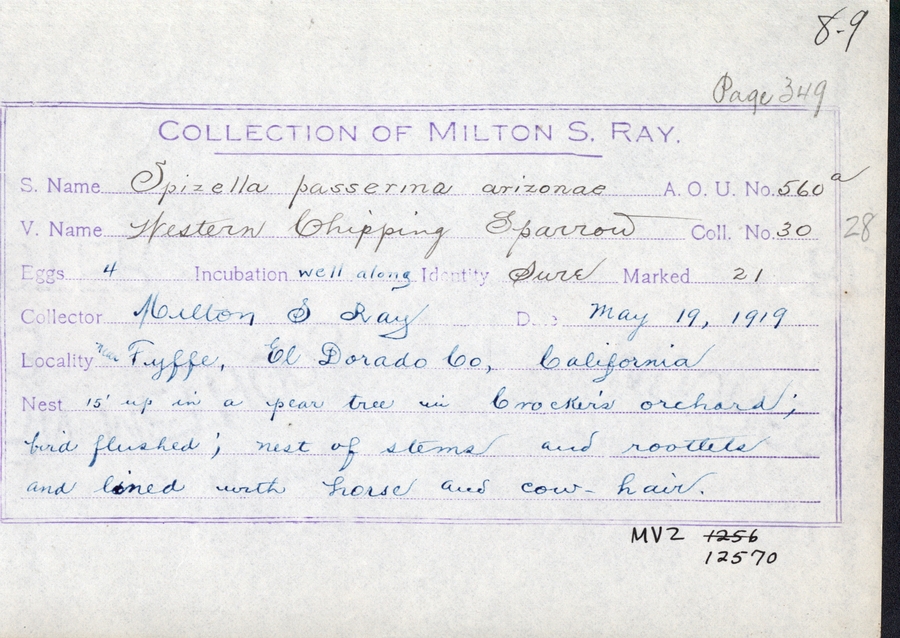 8-9
Page 349
COLLECTION OF MILTON S. RAY.
S. Name Spizella passerina arizonae A. O. U. No. 560a
V. Name Western Chipping Sparrow Coll. No. 30 28
Eggs 4 Incubation well along Identity Sure Marked 21
Collector Milton S Ray Date May 19, 1919
Locality near Fyffe, El Dorado Co, California
Nest 15' up in a pear tree in Crocker's orchard;
bird flushed; nest of stems and rootlets
and lined with horse and cow-hair.
MVZ 1256
12570